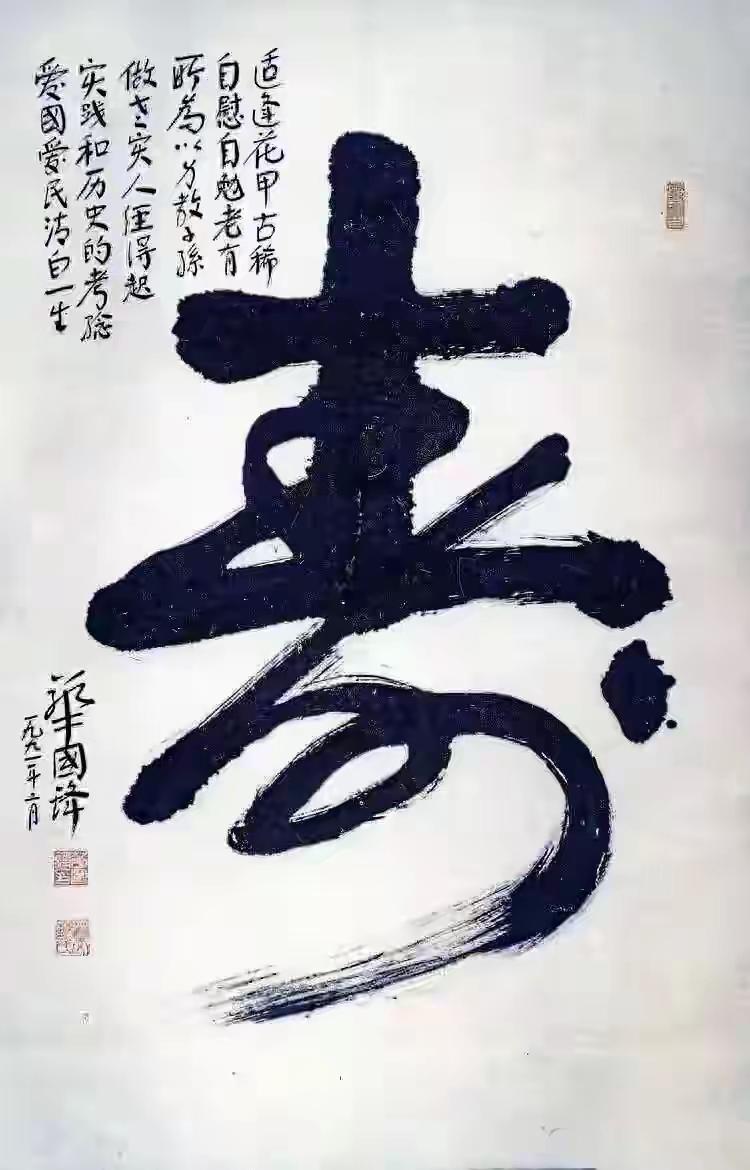 适逢花甲古稀
自慰自勉老有
所為以方教子孫
做老实人经得起
实践和历史的考验
爱國爱民清白一生
寿
華國锋
一九九一年二月